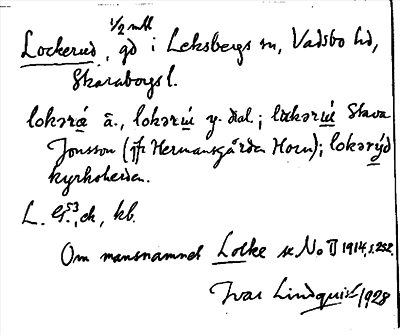 1/2 mtl
Lockerud, gd i Leksbergs sn, Vadsbo hd,
Skaraborgs l.
lokərá ä., lokərú y. dial.; lukərú Stava
Jonsson (jfr Hermansgården Horn); lokərýd
kyrkoherden.
L. G. 53, ek, kb.
Om mansnamnet Locke se NoB 1914, s. 252.
Ivar Lindquist 1928